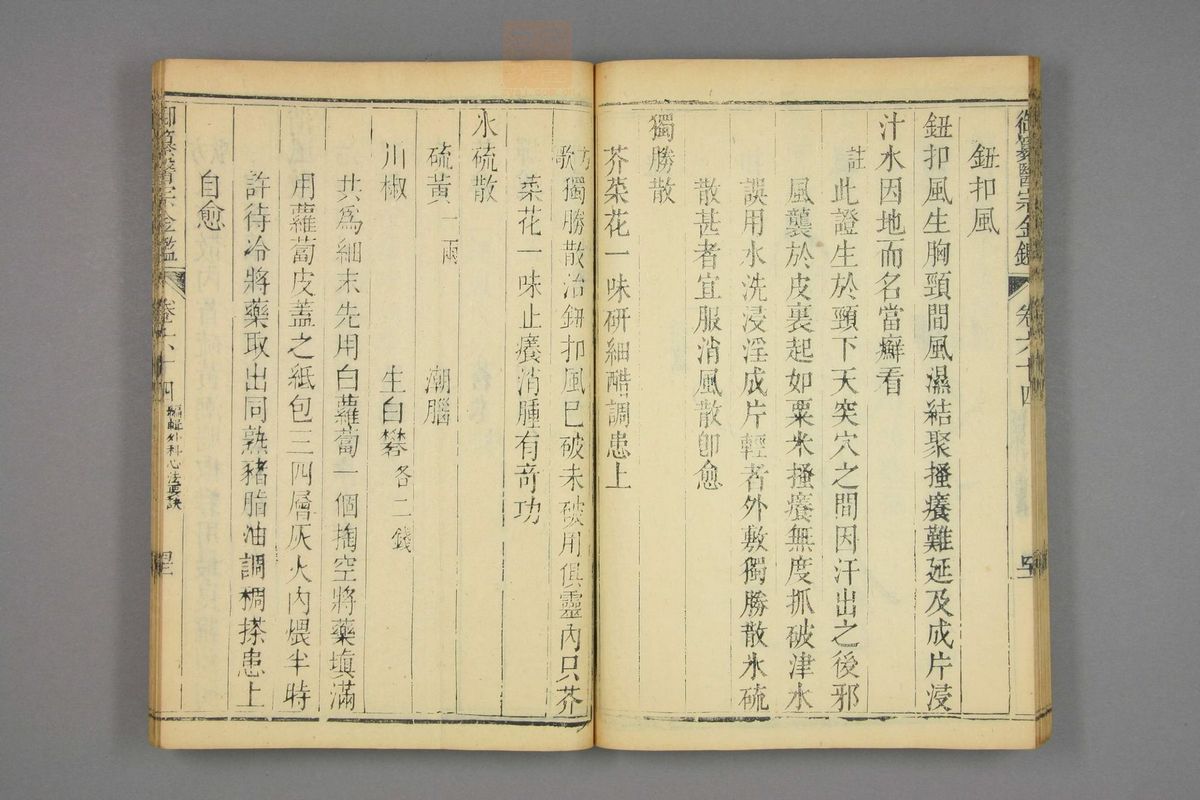 御纂醫宗金鑑 卷六十四
鈕扣風
鈕扣風生胸頸間風濕結聚搔癢難延及成片浸
汁水因地而名當癬看
註此證生於頸下天突穴之間因汗出之後邪
風襲於皮裏起如粟米搔癢無度抓破津水
誤用水洗浸淫成片輕者外敷獨勝散氷硫
散甚者宜服消風散卽愈
獨勝散
芥菜花一味研細醋調患上
方歌獨勝散治鈕扣風已破未破用俱靈內只芥
菜花一味止癢消腫有奇功
氷硫散
硫黃一兩 潮腦
川椒 生白礬各二錢
共爲細末先用白蘿蔔一個掏空將藥塡滿
用蘿蔔皮蓋之紙包三四層灰火內煨半時
許待冷將藥取出同熟豬脂油調稠搽患上
自愈
御纂醫宗金鑑 卷六十四 編輯外科心法要訣